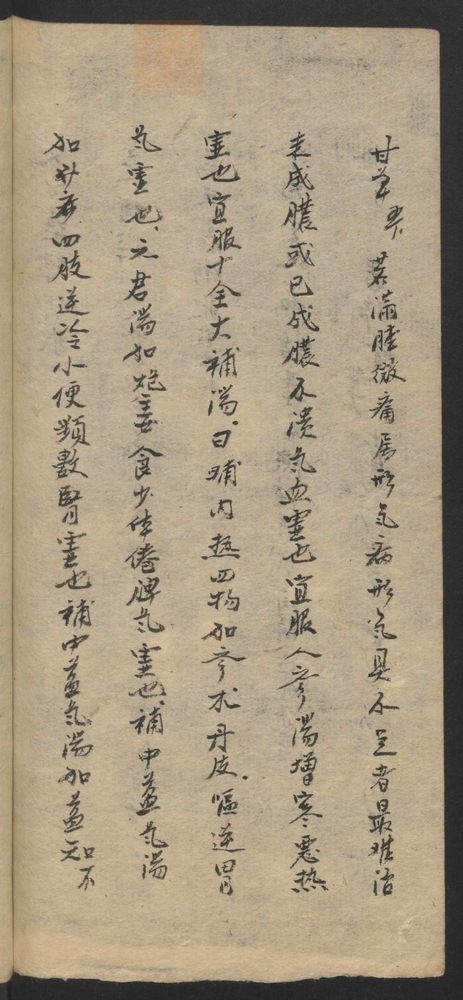 甘草 若滿腫微痛屬形气病形气具不足者最难治
未成膿或已成膿不潰气血虛也宜服人參湯增寒惡热
虛也宜服十全大補湯日晡内热四物加參朮丹皮嘔逆胃
气虛也六君湯加炮姜食少体倦脾气虛也補中益气湯
加 四肢逆冷小便頻數腎虛也補中益气湯加益知不